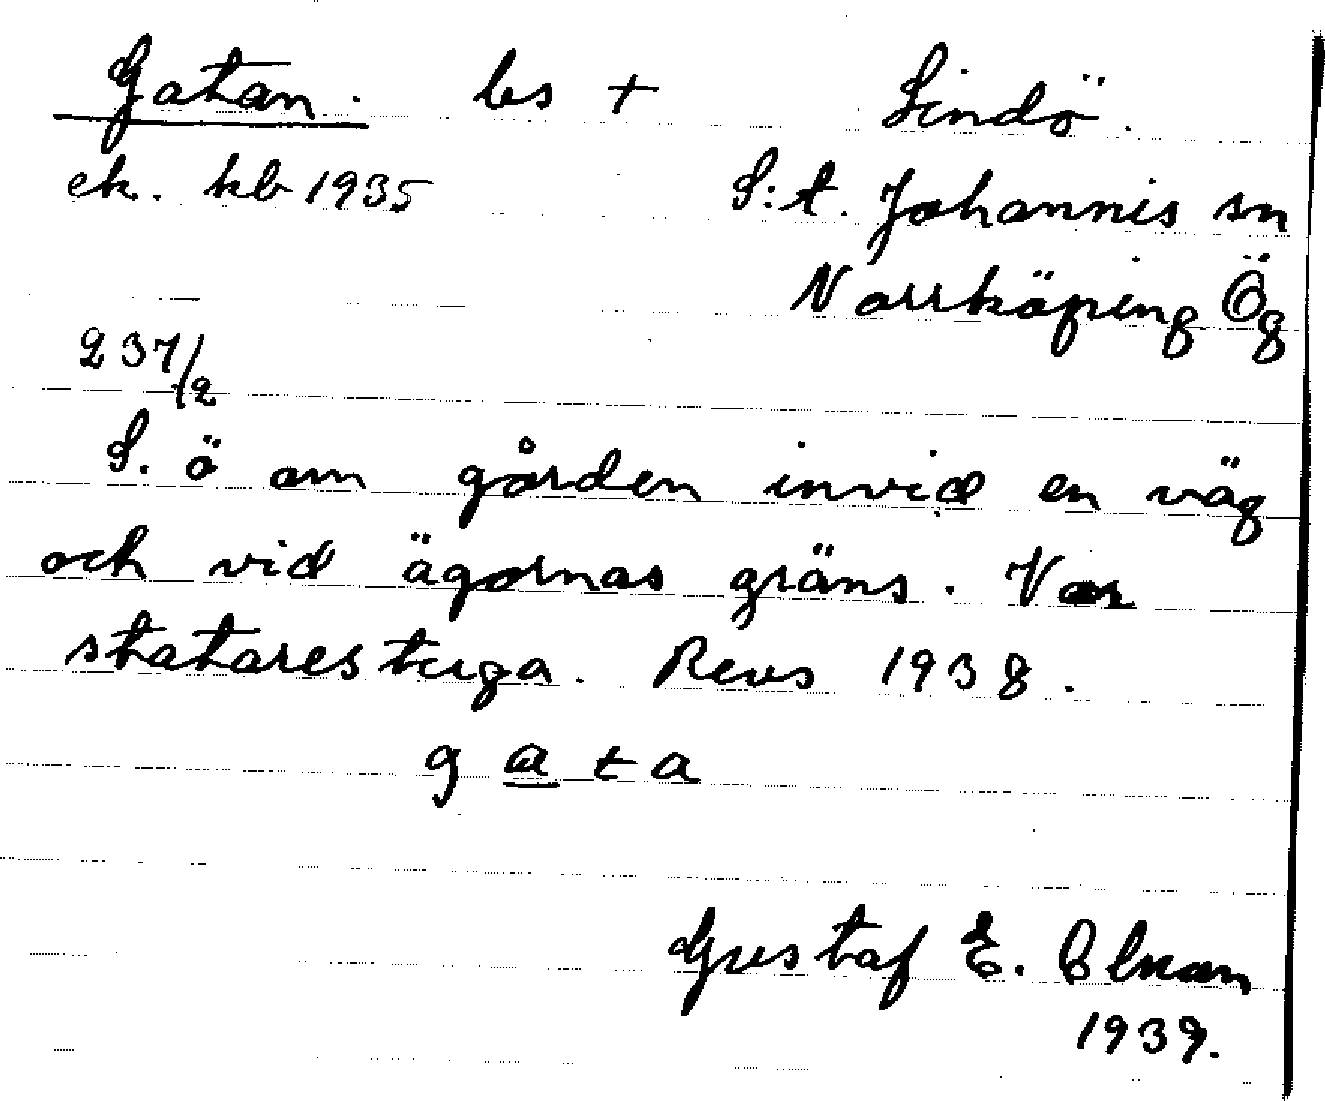 Gatan. bs + Lindö.
ek. kb 1935 S:t. Johannis sn
Norrköping Ög
237/2
S. ö om gården invid en väg
och vid ägornas gräns. Var
statarestuga. Revs 1938.
g a t a
Gustaf E. Elman
1939.